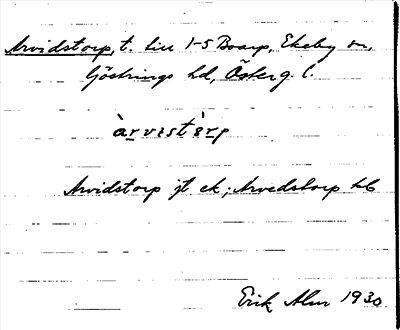 Arvidstorp, t. till 1-5 Boarp, Ekeby sn,
Göstrings hd, Österg. l.
àrvistò̀rp
Arvidstorp jt ek; Arvedstorp hb
Erik Alm 1930